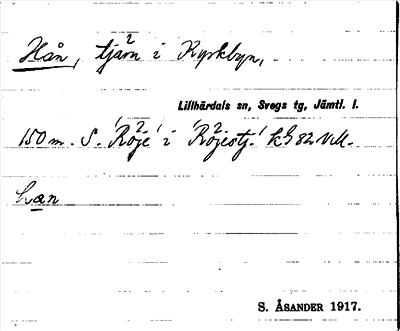 Hån, tjärn i Kyrkbyn,
Lillhärdals sn, Svegs tg, Jämtl. l.
150 m. S. 'Röje' i 'Röjestj.' kg 82 V.M.
han
S. ÅSANDER 1917.